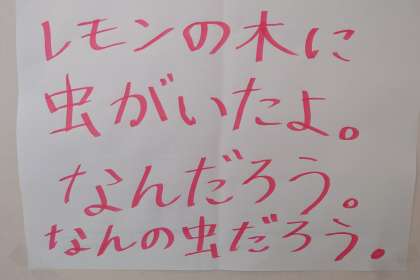 レモンの木に
虫がいたよ。
なんだろう。
なんの虫だろう。